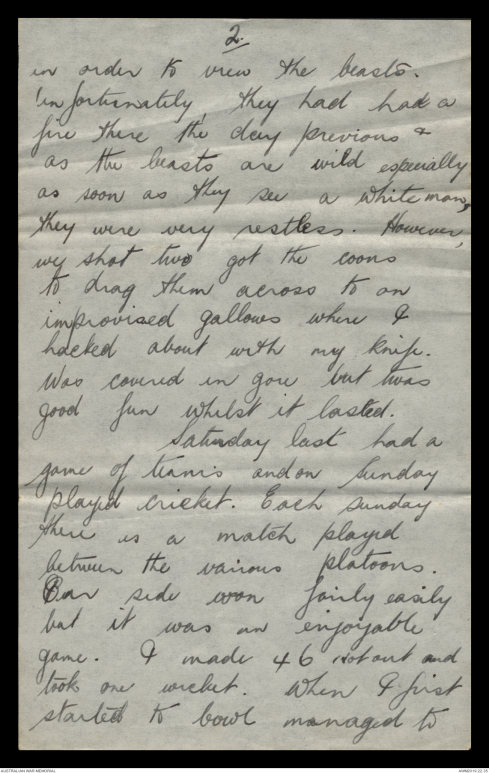 2.
in order to view the beasts.
Unfortunately they had had a
fire there the day previous &
as the beasts are wild especially
as soon as they see a white man,
they were very restless. However,
we shot two got the coons
to drag them across to an
improvised gallows where I
hacked about with my knife.
Was covered in gore but twas
good fun whilst it lasted.
Saturday last had a
game of tennis and on Sunday
played cricket. Each Sunday
there is a match played
between the various platoons.
Our side won fairly easily
but it was an enjoyable
game. I made 46 not out and
took one wicket. When I first
started to bowl managed to
AUSTRALIAN WAR MEMORIAL